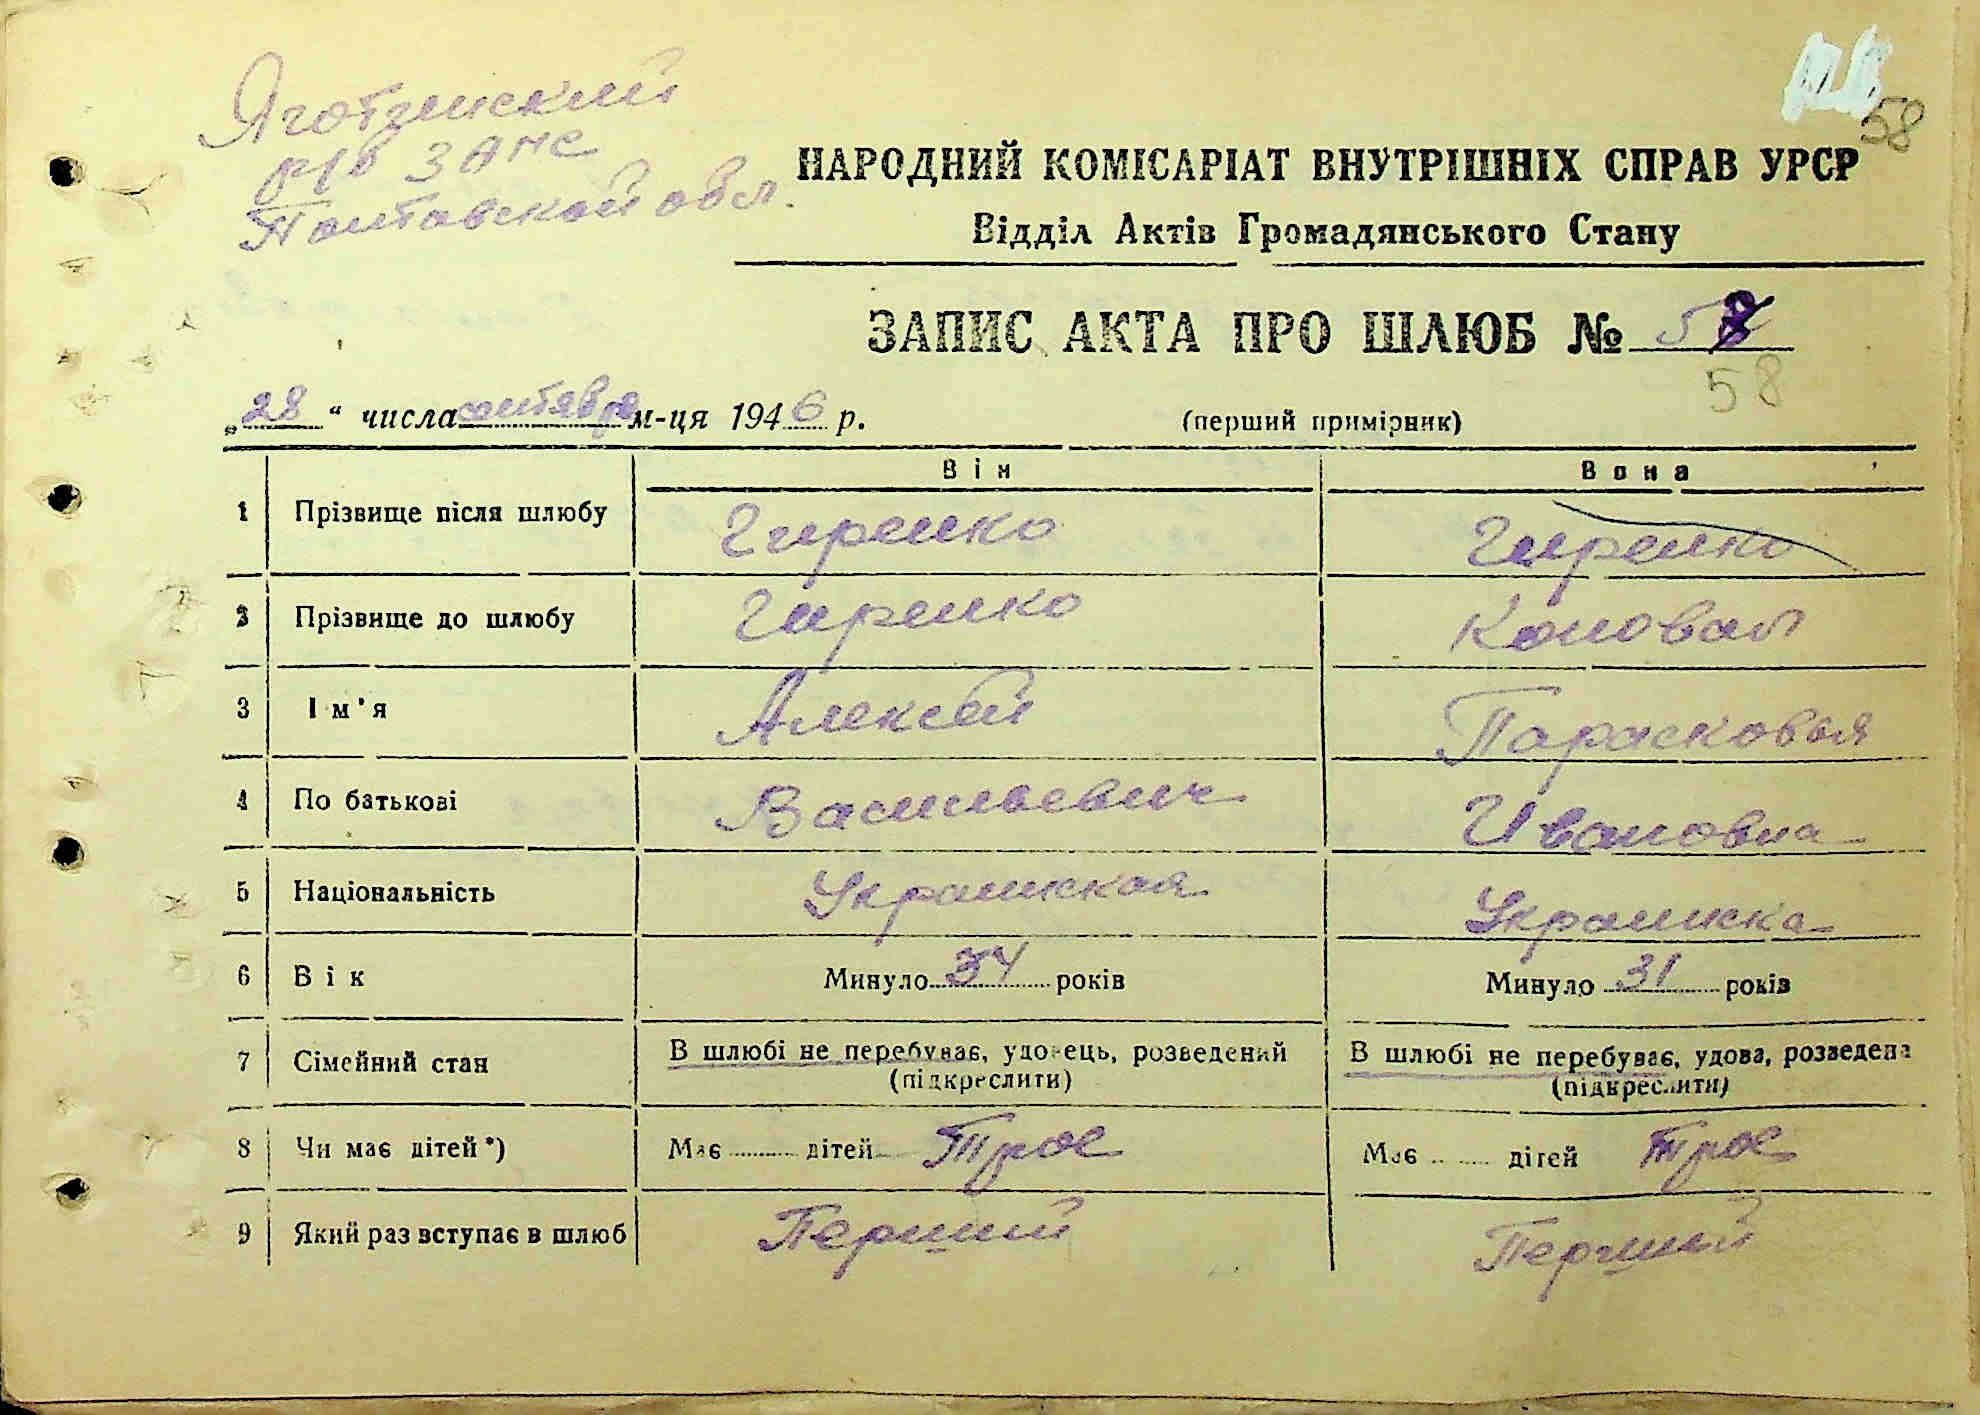 58
Яготинский
р/б ЗАГС
Полтавской обл.
НАРОДНИЙ КОМІСАРІАТ ВНУТРІШНІХ СПРАВ УРСР
Відділ Актів Громадянського Стану
ЗАПИС АКТА ПРО ШЛЮБ № 58
58
„28“ числа сентября м-ця 1946 р. (перший примірник)
Він Вона
1 Прізвище після шлюбу Гиренко Гиренко
2 Прізвище до шлюбу Гиренко Коновал
3 Ім'я Алексей Парасковья
4 По батькові Васильевич Ивановна
5 Національність Украинская Украинска
6 Вік Минуло 34 років Минуло 31 років
7 Сімейний стан В шлюбі не перебуває, удовець, розведений (підкреслити) В шлюбі не перебуває, удова, розведена (підкреслити)
8 Чи має дітей*) Має дітей Трое Має дітей Трое
9 Який раз вступає в шлюб Перший Перший